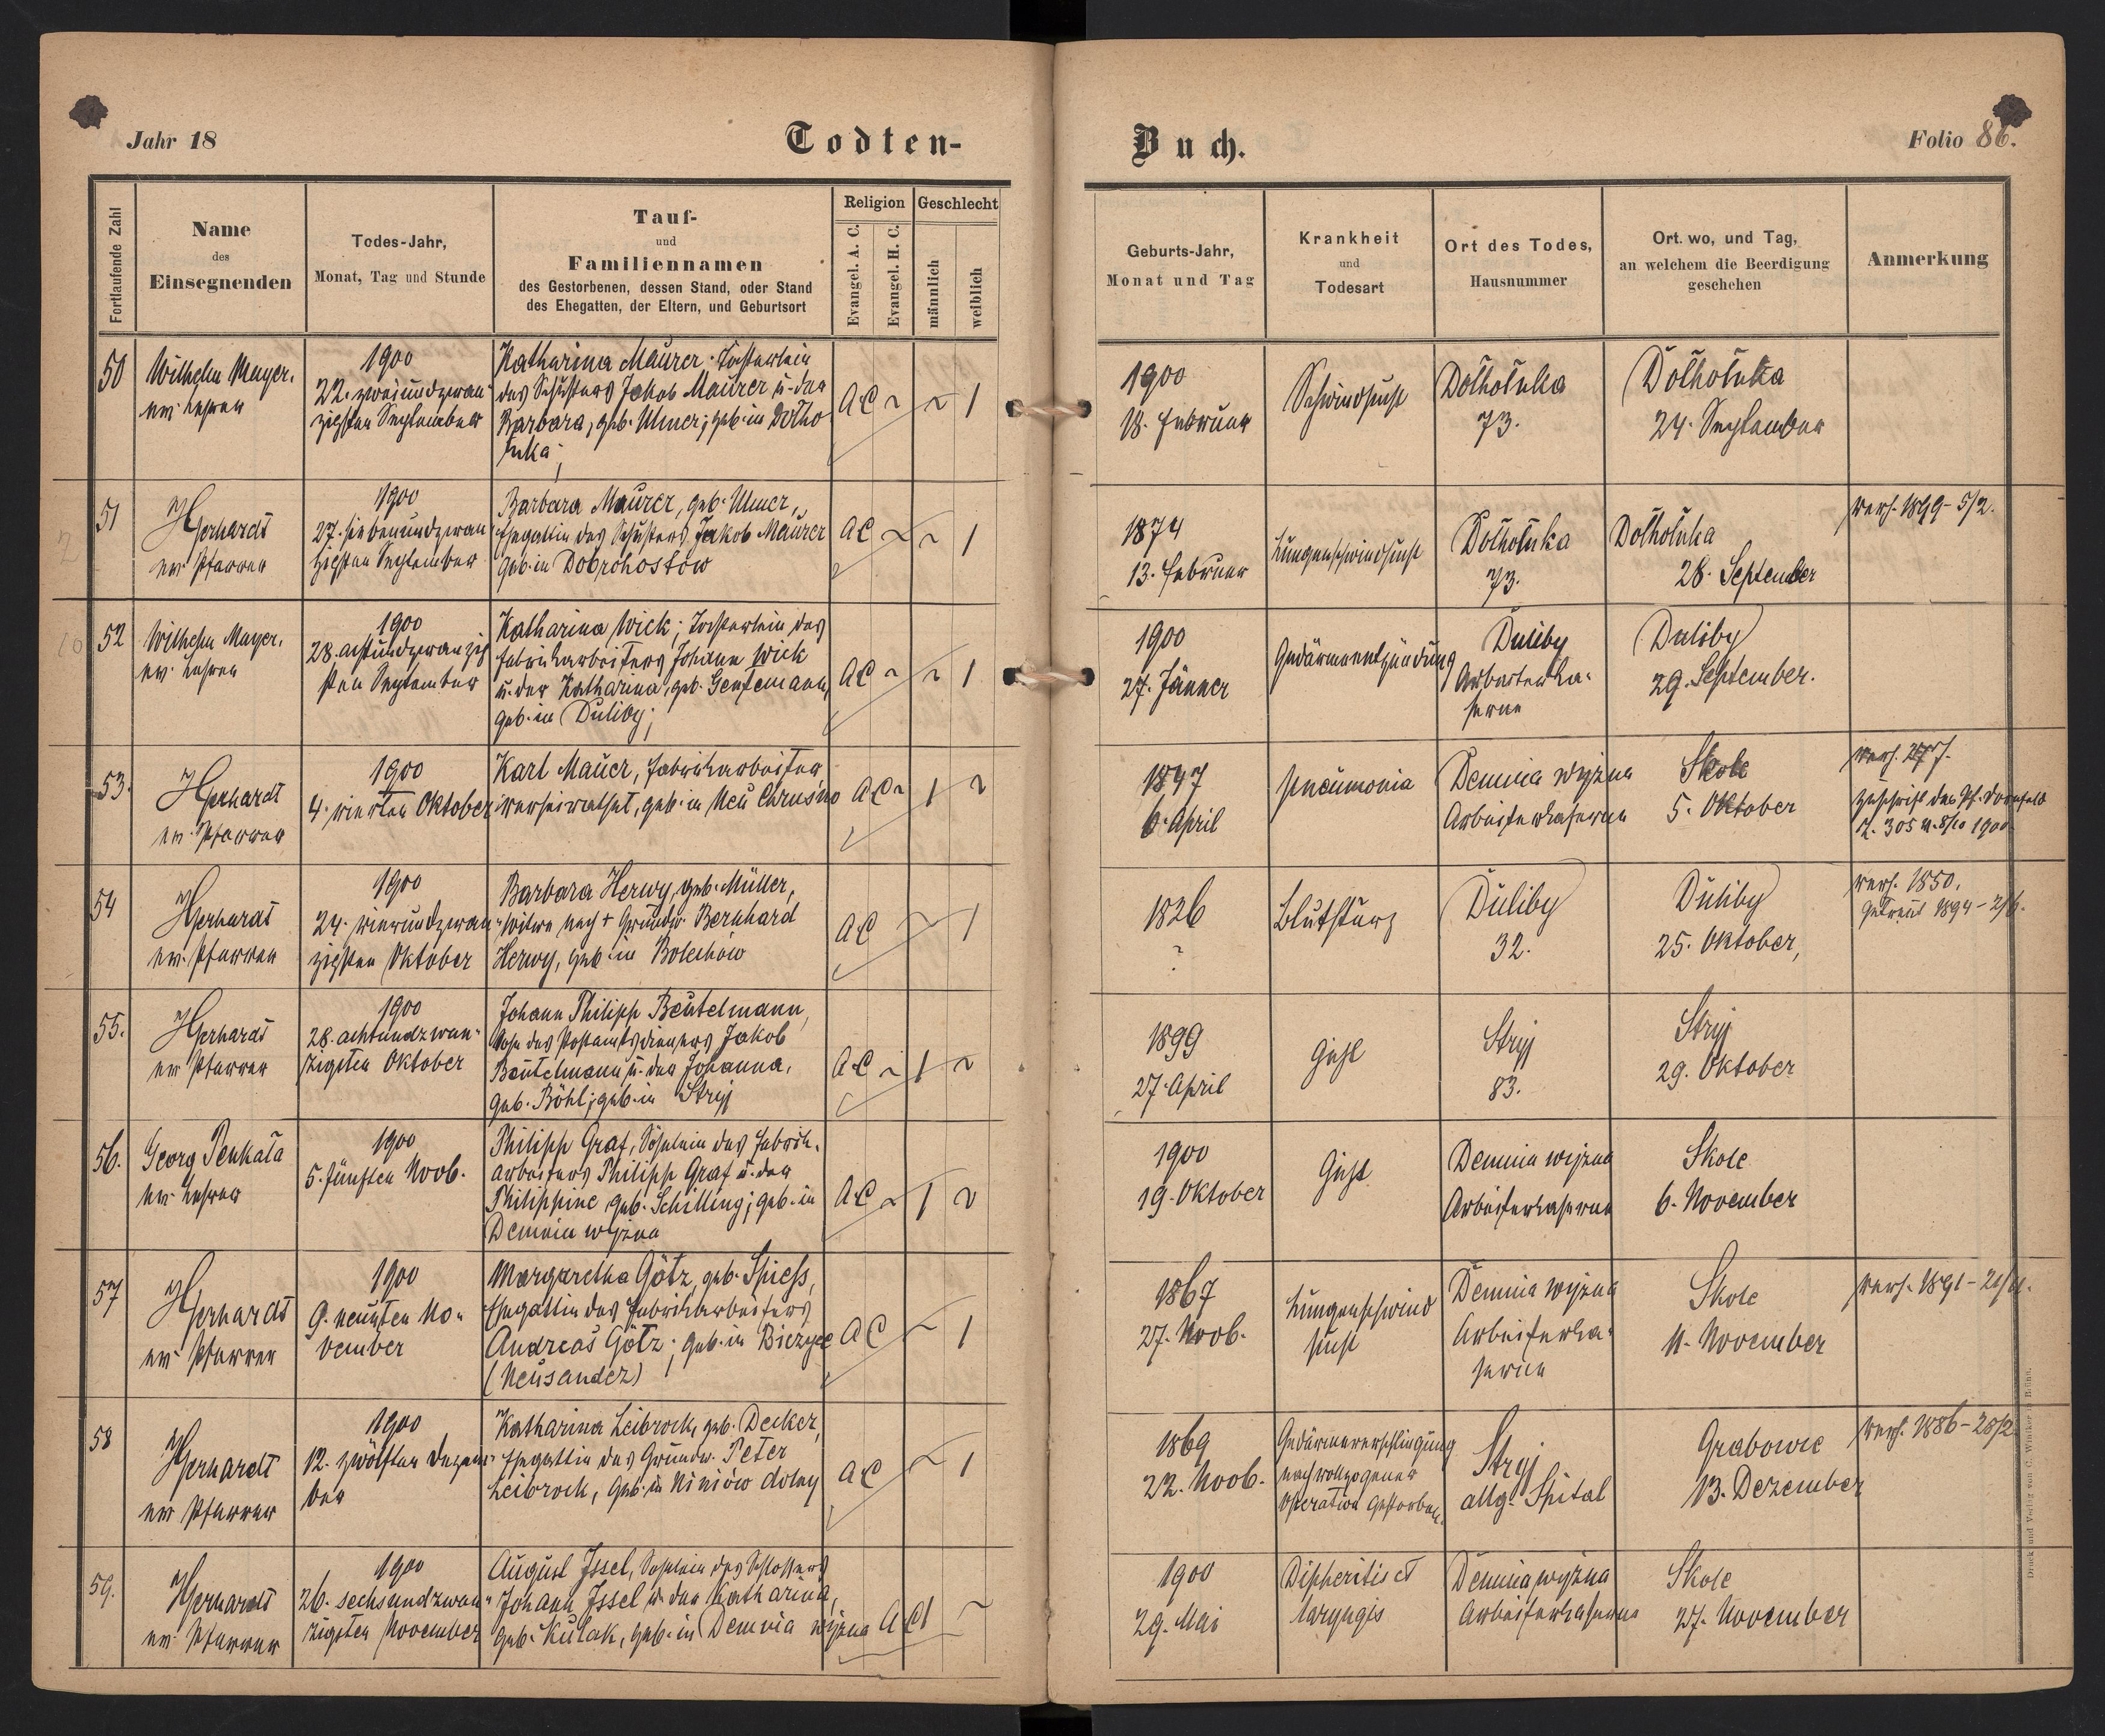 Jahr 18
Todten-
Buch.
Folio 86.
Fortlaufende Zahl
Name
des
Einsegnenden
Todes-Jahr,
Monat, Tag und Stunde
Tauf-
und
Familiennamen
des Gestorbenen, dessen Stand, oder Stand
des Ehegatten, der Eltern, und Geburtsort
Religion
Evangel. A. C.
Evangel. H. C.
Geschlecht
männlich
weiblich
Geburts-Jahr,
Monat und Tag
Krankheit
und
Todesart
Ort des Todes,
Hausnummer
Ort. wo, und Tag,
an welchem die Beerdigung
geschehen
Anmerkung
50
Wilhelm Mayer.
ev. Lehrer
1900
22. zweiundzwan-
zigsten September
Katharina Maurer. Töchterlein
des Schusters Jakob Maurer u. der
Barbara, geb. Ulmer; geb. in Dolho-
luka;
AC ~ ~ 1
1900
18. Februar
Schwindsucht
Dolholuka
73.
Dolholuka
24. September
51
Gerhardt
ev. Pfarrer
1900
27. siebenundzwan-
zigsten September
Barbara Maurer, geb. Ulmer,
Ehegattin des Schusters Jakob Maurer
geb. in Dobrohostow
AC ~ ~ 1
1874
13. Februar
Lungenschwindsucht
Dolholuka
73.
Dolholuka
28. September
verh. 1899 - 5/2.
52
Wilhelm Mayer.
ev. Lehrer
1900
28. achtundzwanzig
sten September
Katharina Wick; Töchterlein des
Fabriksarbeiters Johann Wick
u. der Katharina, geb. Gentemann,
geb. in Duliby;
AC ~ ~ 1
1900
27. Jänner
Gedärmentzündung
Duliby
Arbeiterka-
serne
Duliby
29. September.
53.
Gerhardt
ev. Pfarrer
1900
4. vierten Oktober
Karl Mauer, Fabriksarbeiter,
verheirathet, geb. in Neu Chrusno
AC ~ 1 ~
1847
6. April
Pneumonia
Demnia wyżna
Arbeiterkaserne
Skole
5. Oktober
Zuschrift des Pf. Dornfeld
Z. 305 v. 8/10 1900
54
Gerhardt
ev. Pfarrer
1900
24. vierundzwan-
zigsten Oktober
Barbara Herwy, geb. Müller,
Witwe nach + Grundw. Bernhard
Herwy, geb. in Bolechow
AC ~ 1
1826
?
Blutsturz
Duliby
32.
Duliby
25. Oktober,
verh. 1850.
getraut 1894 - 2/6.
55.
Gerhardt
ev. Pfarrer
1900
28. achtundzwan-
zigsten Oktober
Johann Philipp Beutelmann,
Sohn des Postamtsdieners Jakob
Beutelmann u. der Johanna,
geb. Böhl; geb. in Stryj
AC ~ 1 ~
1899
27. April
Gicht
Stryj
83.
Stryj
29. Oktober
56.
Georg Penkala
ev. Lehrer
1900
5. fünften Novb.
Philipp Graf, Söhnlein des Fabrik-
arbeiters Philipp Graf u. der
Philippine geb. Schilling; geb. in
Demnia wyżna
AC ~ 1 ~
1900
19. Oktober
Gicht
Demnia wyżna
Arbeiterkaserne
Skole
6. November
57
Gerhardt
ev. Pfarrer
1900
9. neunten No-
vember
Margaretha Götz, geb. Spiess,
Ehegattin des Fabriksarbeiters
Andreas Götz; geb. in Biczyce
(Neusandez)
AC ~ 1
1867
27. Novb.
Lungenschwind
sucht
Demnia wyżna
Arbeiterka-
serne
Skole
11. November
58
Gerhardt
ev. Pfarrer
1900
12. zwölften Dezem-
ber
Katharina Leibrock, geb. Decker,
Ehegattin des Grundw. Peter
Leibrock, geb. in Niniów dolny
AC ~ 1
1869
22. Novb.
Gedärmeverschlingung
nach vollzogener
Operation gestorben.
Stryj
allg. Spital
Grabowce
13. Dezember
verh. 1886 - 28/2
59.
Gerhardt
ev. Pfarrer
1900
26. sechsundzwan-
zigsten November
August Issel, Söhnlein des Schlossers
Johann Issel u. der Katharina,
geb. Kulak, geb. in Demnia wyżna
AC 1 ~
1900
29. Mai
Dipheritis et
laryngis
Demnia wyżna
Arbeiterkaserne
Skole
27. November